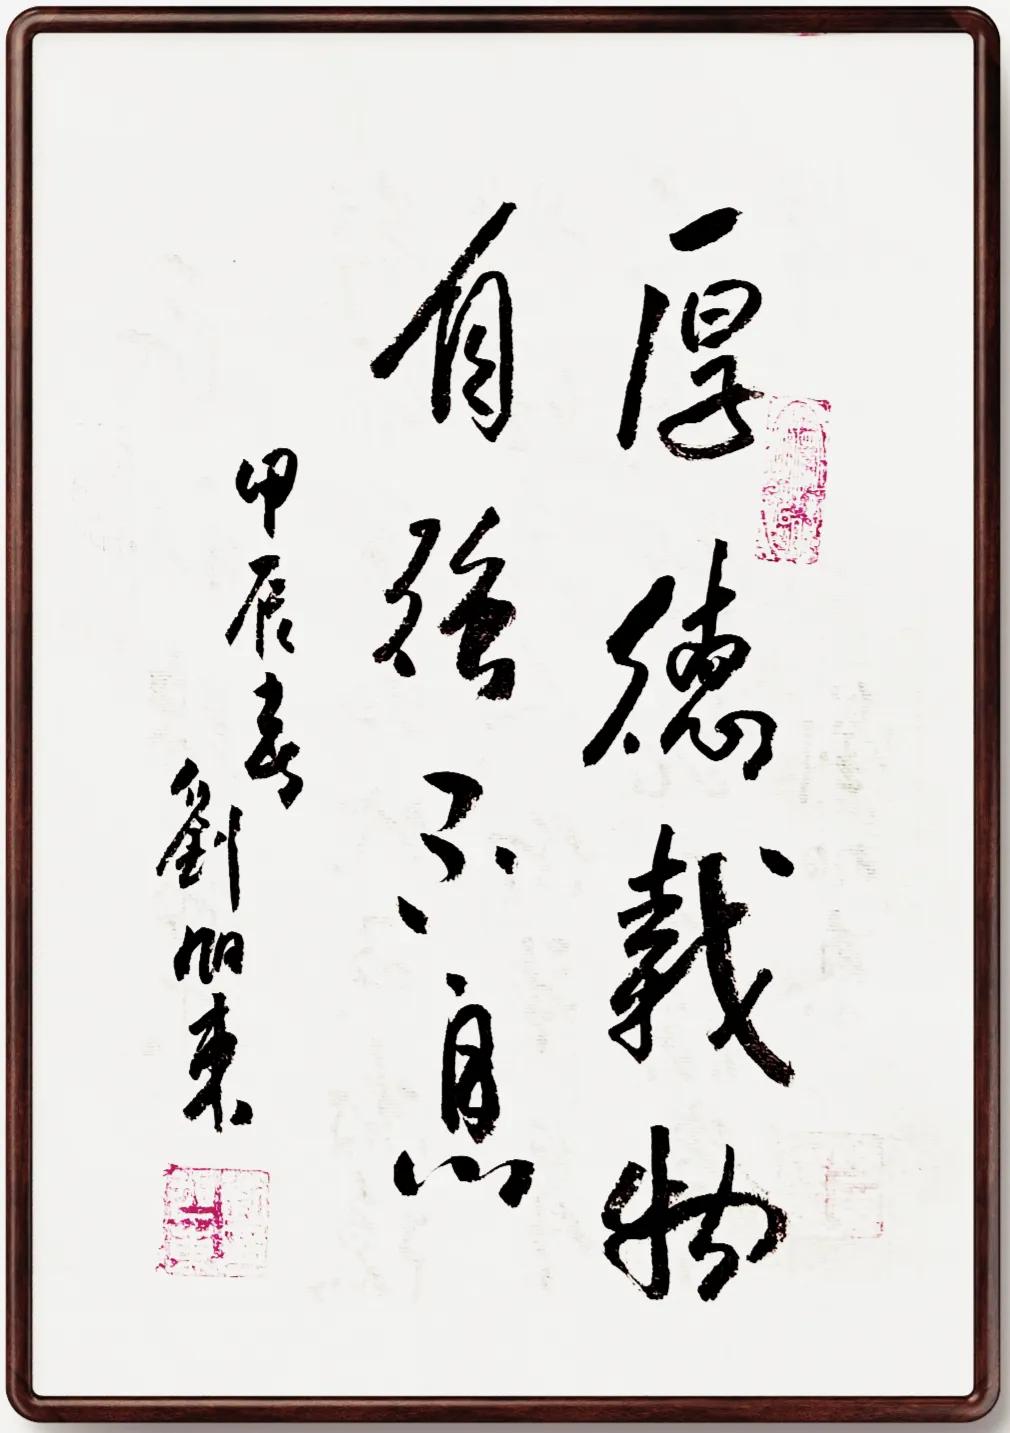 厚德载物
自强不息
甲辰春
劉旭東